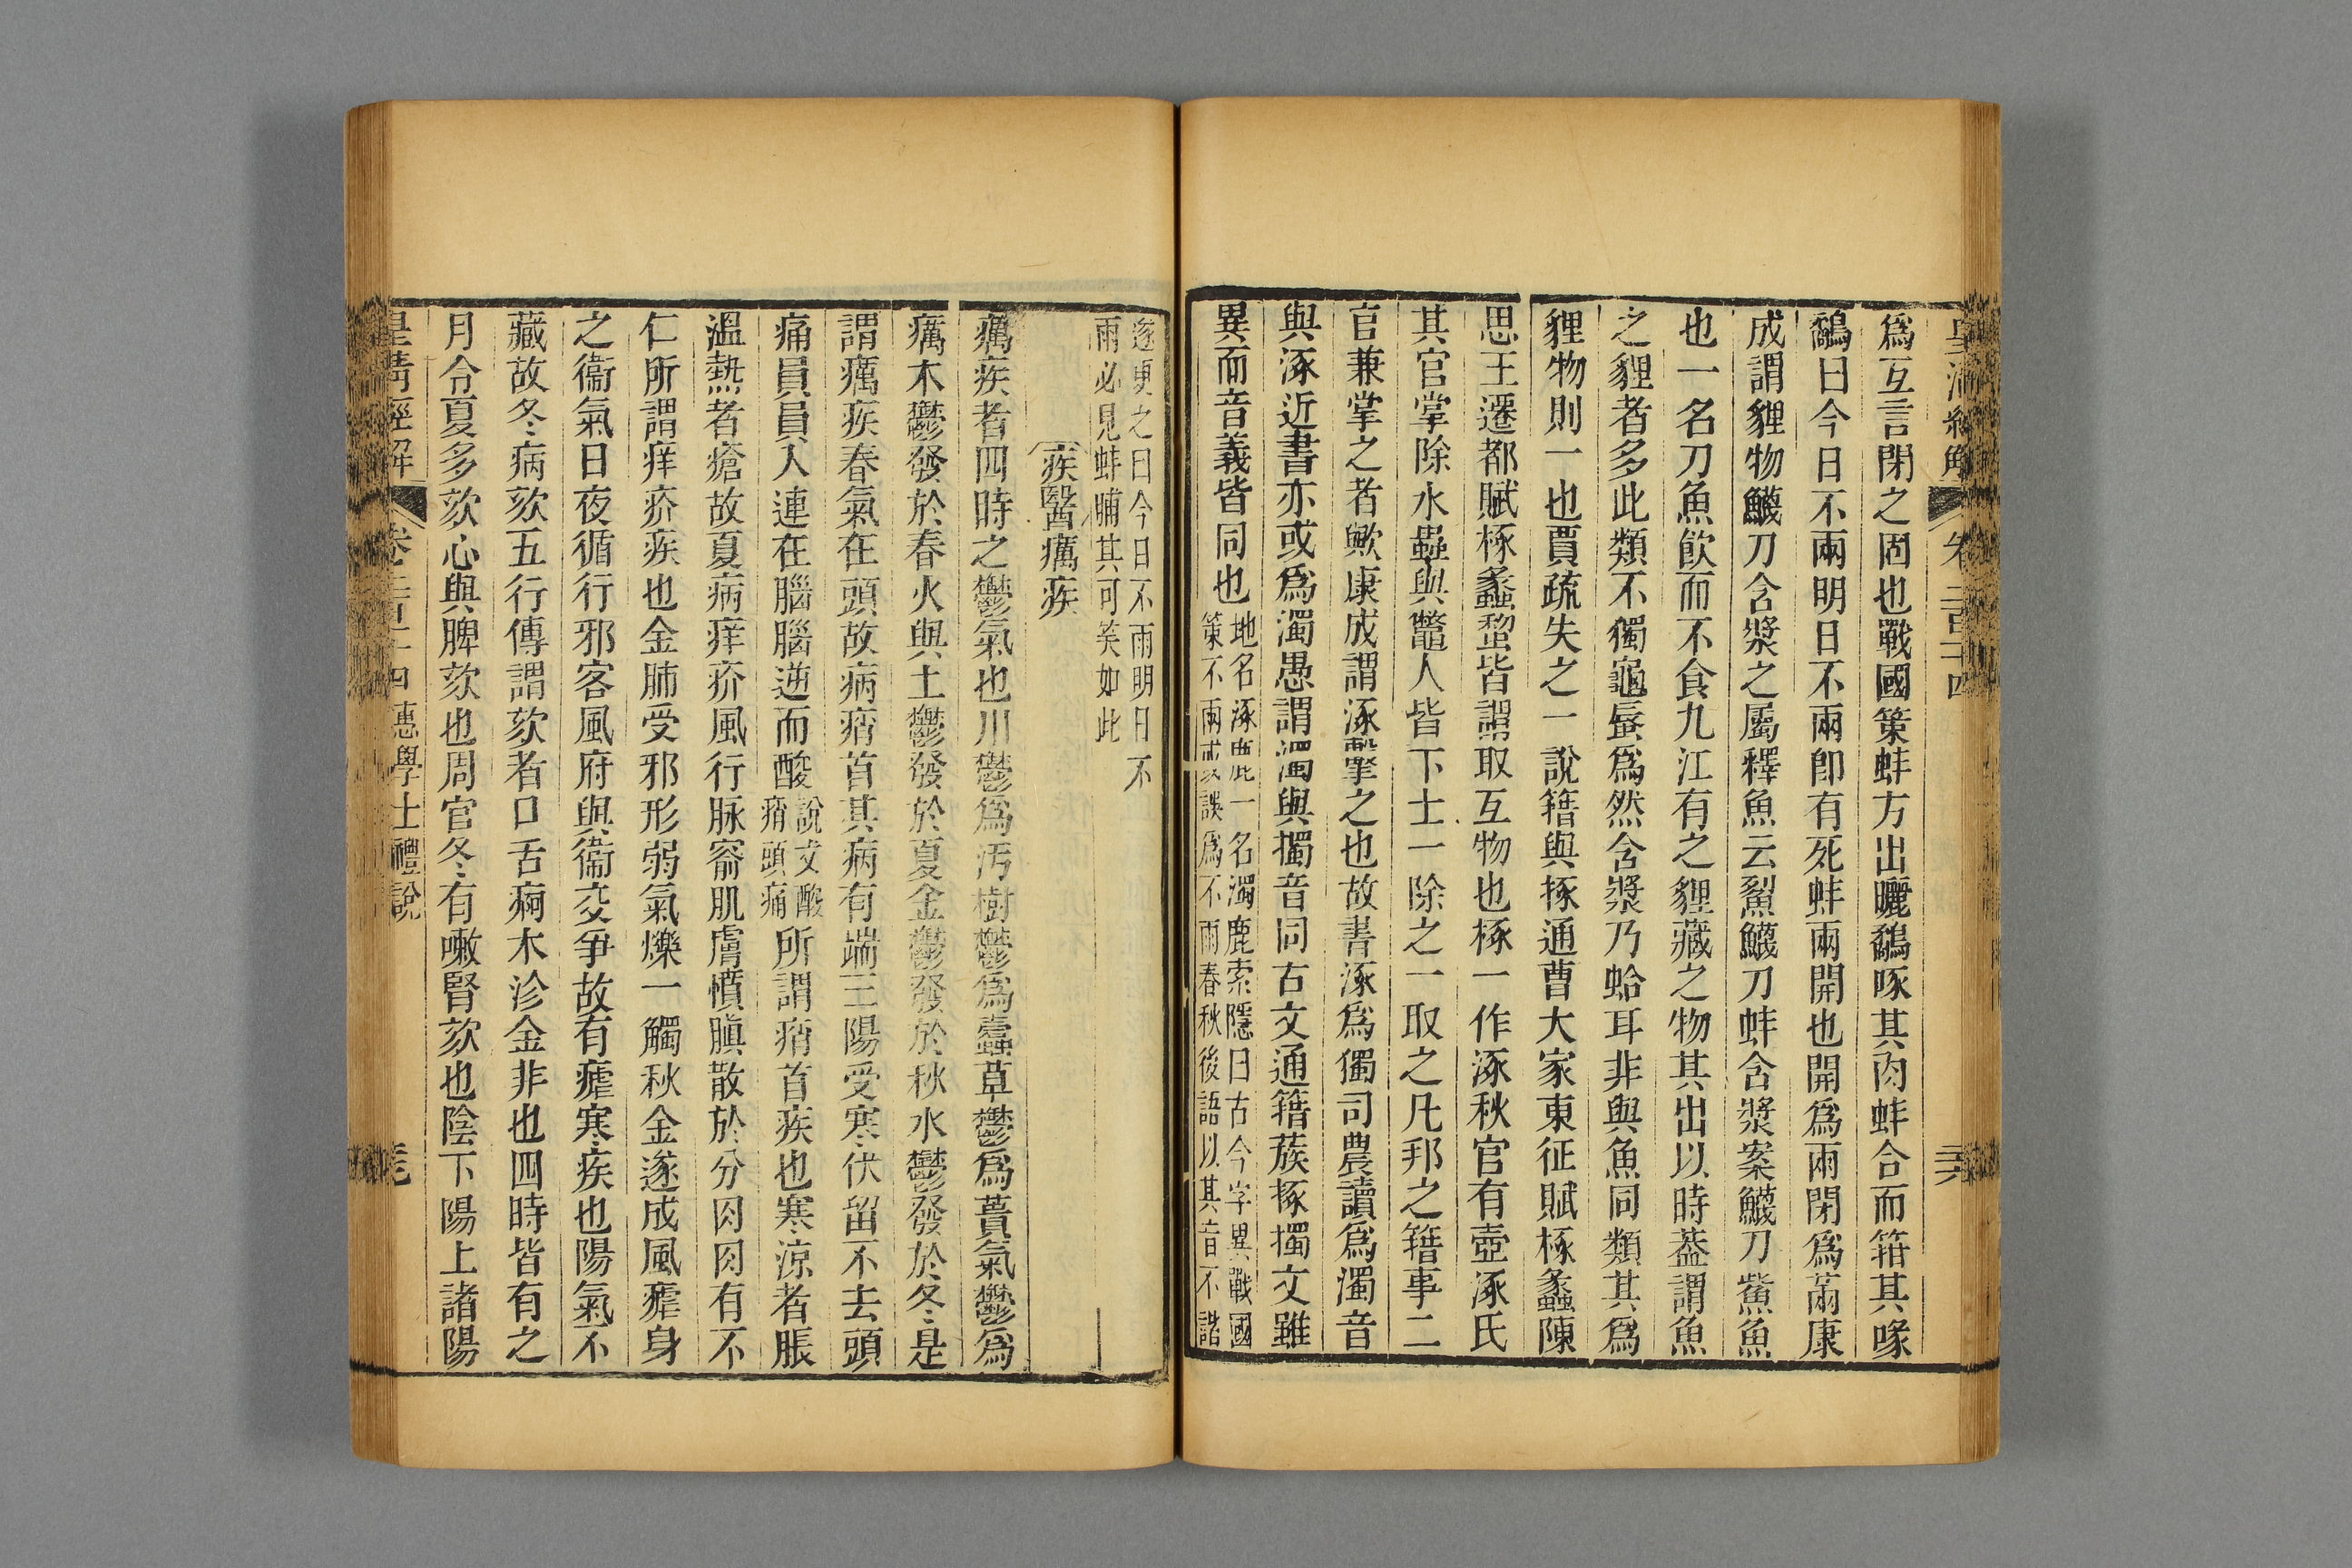 皇清經解
卷二百十四
爲互言閉之固也戰國策蚌方出曬鷸啄其肉蚌合而箝其喙
鷸曰今日不兩明日不兩卽有死蚌兩開也開爲兩閉爲㒼康
成謂貍物鱴刀含漿之屬釋魚云鮤鱴刀蚌含漿案鱴刀鮆魚
也一名刀魚飮而不食九江有之貍藏之物其出以時葢謂魚
之貍者多此類不獨龜蜃爲然含漿乃蛤耳非與魚同類其爲
貍物則一也賈疏失之一說簎與㧻通曹大家東征賦椓蠡陳
思王遷都賦椓蠡蝥皆謂取互物也椓一作涿秋官有壺涿氏
其官掌除水蟲與鼈人皆下士一除之一取之凡邦之簎事二
官兼掌之者歟康成謂涿擊之也故書涿爲獨司農讀爲濁音
與涿近書亦或爲濁愚謂濁與擉音同古文通簎蔟㧻擉文雖
異而音義皆同也
地名涿鹿一名濁鹿索隱曰古今字異戰國
策不兩或誤爲不雨春秋後語以其音不諧
遂更之曰今日不雨明日不
雨必見蚌脯其可笑如此
疾醫癘疾
癘疾者四時之鬱氣也川鬱爲汚樹鬱爲蠹草鬱爲蕢氣鬱爲
癘木鬱發於春火與土鬱發於夏金鬱發於秋水鬱發於冬是
謂癘疾春氣在頭故病痟首其病有端三陽受寒伏留不去頭
痛員員入連在腦腦逆而酸
說文酸
痟頭痛
所謂痟首疾也寒涼者脹
溫熱者瘡故夏病痒疥風行脉窬肌膚憤䐜散於分肉肉有不
仁所謂痒疥疾也金肺受邪形弱氣爍一觸秋金遂成風瘧身
之衞氣日夜循行邪客風府與衞交爭故有瘧寒疾也陽氣不
藏故冬病欬五行傳謂欬者口舌痾木沴金非也四時皆有之
月令夏多欬心與脾欬也周官冬有嗽腎欬也陰下陽上諸陽
皇清經解
惠學士禮說